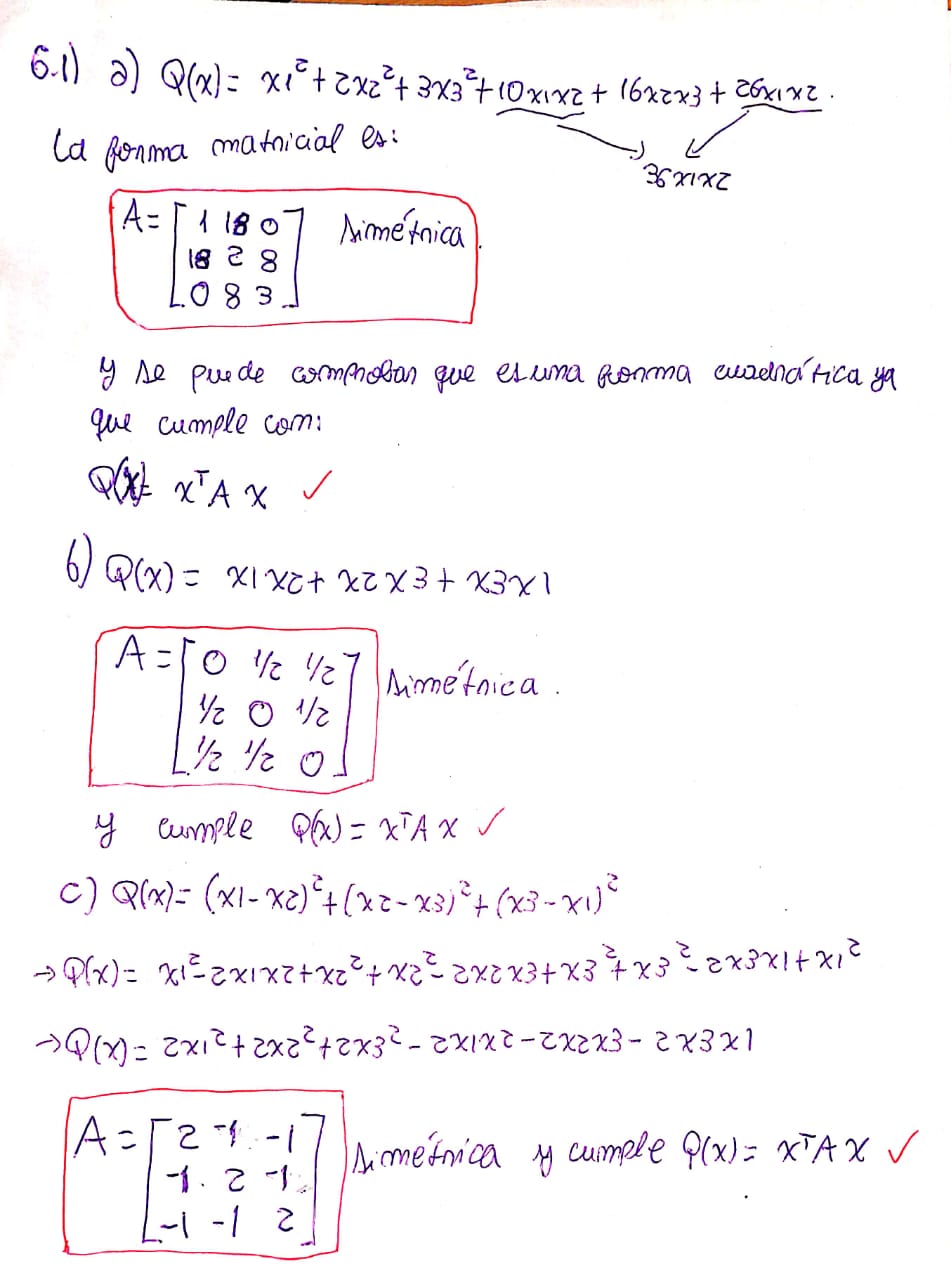 6.1) a) Q(x) = x1² + 2x2² + 3x3² + 10x1x2 + 16x2x3 + 26x1x2.
La forma matricial es:
36x1x2
A = [ 1 18 0 ] simétrica.
18 2 8
0 8 3
y se puede comprobar que es una forma cuadrática ya
que cumple con:
Q(x) = xᵀA x ✓
b) Q(x) = x1x2 + x2x3 + x3x1
A = [ 0 1/2 1/2 ] simétrica.
1/2 0 1/2
1/2 1/2 0
y cumple Q(x) = xᵀA x ✓
c) Q(x) = (x1-x2)² + (x2-x3)² + (x3-x1)²
→ Q(x) = x1² - 2x1x2 + x2² + x2² - 2x2x3 + x3² + x3² - 2x3x1 + x1²
→ Q(x) = 2x1² + 2x2² + 2x3² - 2x1x2 - 2x2x3 - 2x3x1
A = [ 2 -1 -1 ]
-1 2 -1 simétrica y cumple Q(x) = xᵀA x ✓
-1 -1 2